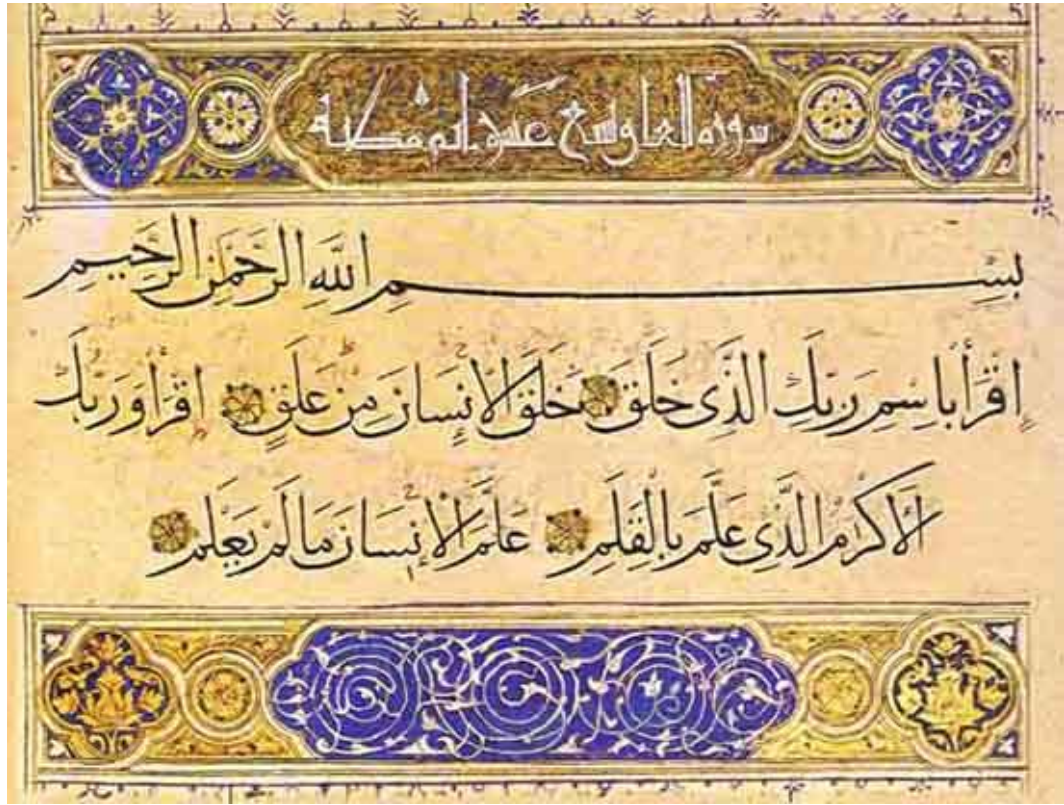 سورة العلق تسع عشرة اية مكية
بِسْمِ اللَّهِ الرَّحْمَنِ الرَّحِيمِ
اِقْرَأْ بِاسْمِ رَبِّكَ الَّذِى خَلَقَ خَلَقَ الْاِنْسَانَ مِنْ عَلَقٍ اِقْرَأْ وَرَبُّكَ
الْأَكْرَمُ الَّذِى عَلَّمَ بِالْقَلَمِ عَلَّمَ الْاِنْسَانَ مَا لَمْ يَعْلَمْ